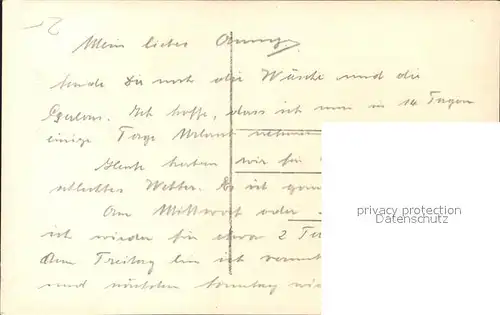 Mein lieber
sende Dir noch die Wäsche und die
Ich hoffe, dass ich nun in 14 Tagen
einige Tage Urlaub nehmen
Heute haben wir für
schlechtes Wetter. Es ist ganz
Am Mittwoch oder
ich wieder für etwa 2
dem Freitag bin ich vermut
und nächsten Sonntag wie
privacy protection
Datenschutz